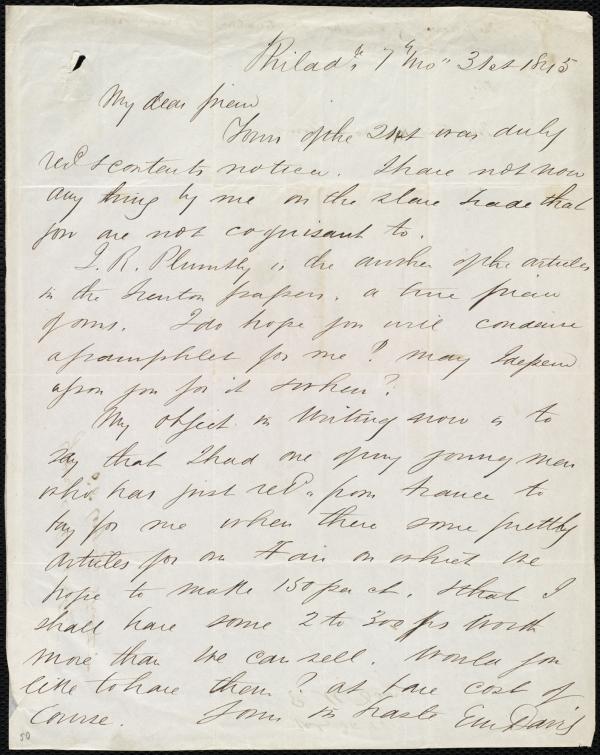 Philad.ª 7th mo " 31st 1845
My dear friend
Yours of the 21st was duly
recd & contents noticed. I have not now
any thing by me on the slave trade that
you are not cognisant to.
J. R. Plumbly is the author of the articles
in the Trenton papers. a true friend
of ours. I do hope you will condense
a pamphlet for me? may I depend
upon you for it & when?
My object in Writing now is to
say that I had one of my young men
who has just retd. from France to
buy for me when there some pretty
articles for our Fair on which we
hope to make 150 per ct. & that I
shall have some 2 to 300 frs Worth
more than we can sell. Would you
like to have them? at bare cost of
Course. Yours in haste Em Davis
50